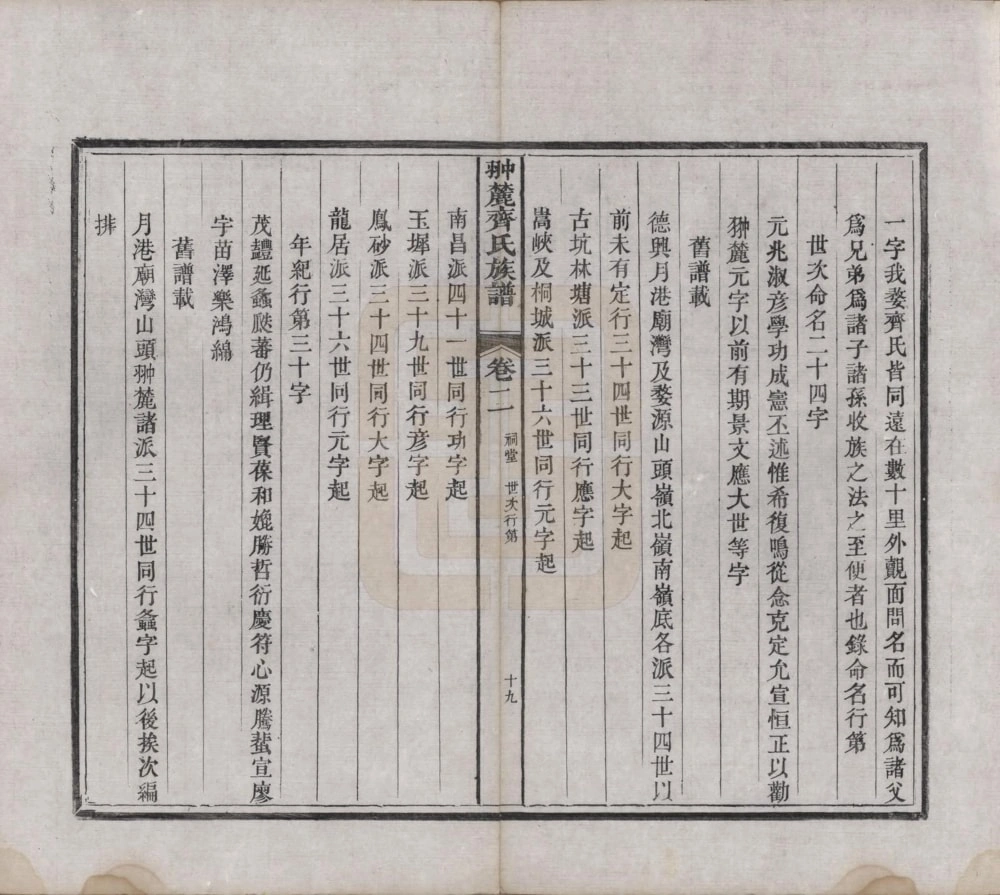 一字我婺齊氏皆同遠在數十里外覿面問名而可知爲諸父
爲兄弟爲諸子諸孫收族之法之至便者也錄命名行第
世次命名二十四字
元兆淑彦學功成憲丕述惟希復鳴從念克定允宣恒正以勸
翀麓元字以前有期景文應大世等字
舊譜載
德興月港廟灣及婺源山頭嶺北嶺南嶺底各派三十四世以
前未有定行三十四世同行大字起
古坑林塘派三十三世同行應字起
嵩峽及桐城派三十六世同行元字起
翀麓齊氏族譜
卷二
祠堂 世次行第
十九
南昌派四十一世同行功字起
玉墀派三十九世同行彦字起
鳳砂派三十四世同行大字起
龍居派三十六世同行元字起
年紀行第三十字
茂軆延螽瓞蕃仍緝理賢葆和娩勝哲衍慶符心源騰蜚宣廖
宇苗澤樂鴻綿
舊譜載
月港廟灣山頭翀麓諸派三十四世同行螽字起以後挨次編
排